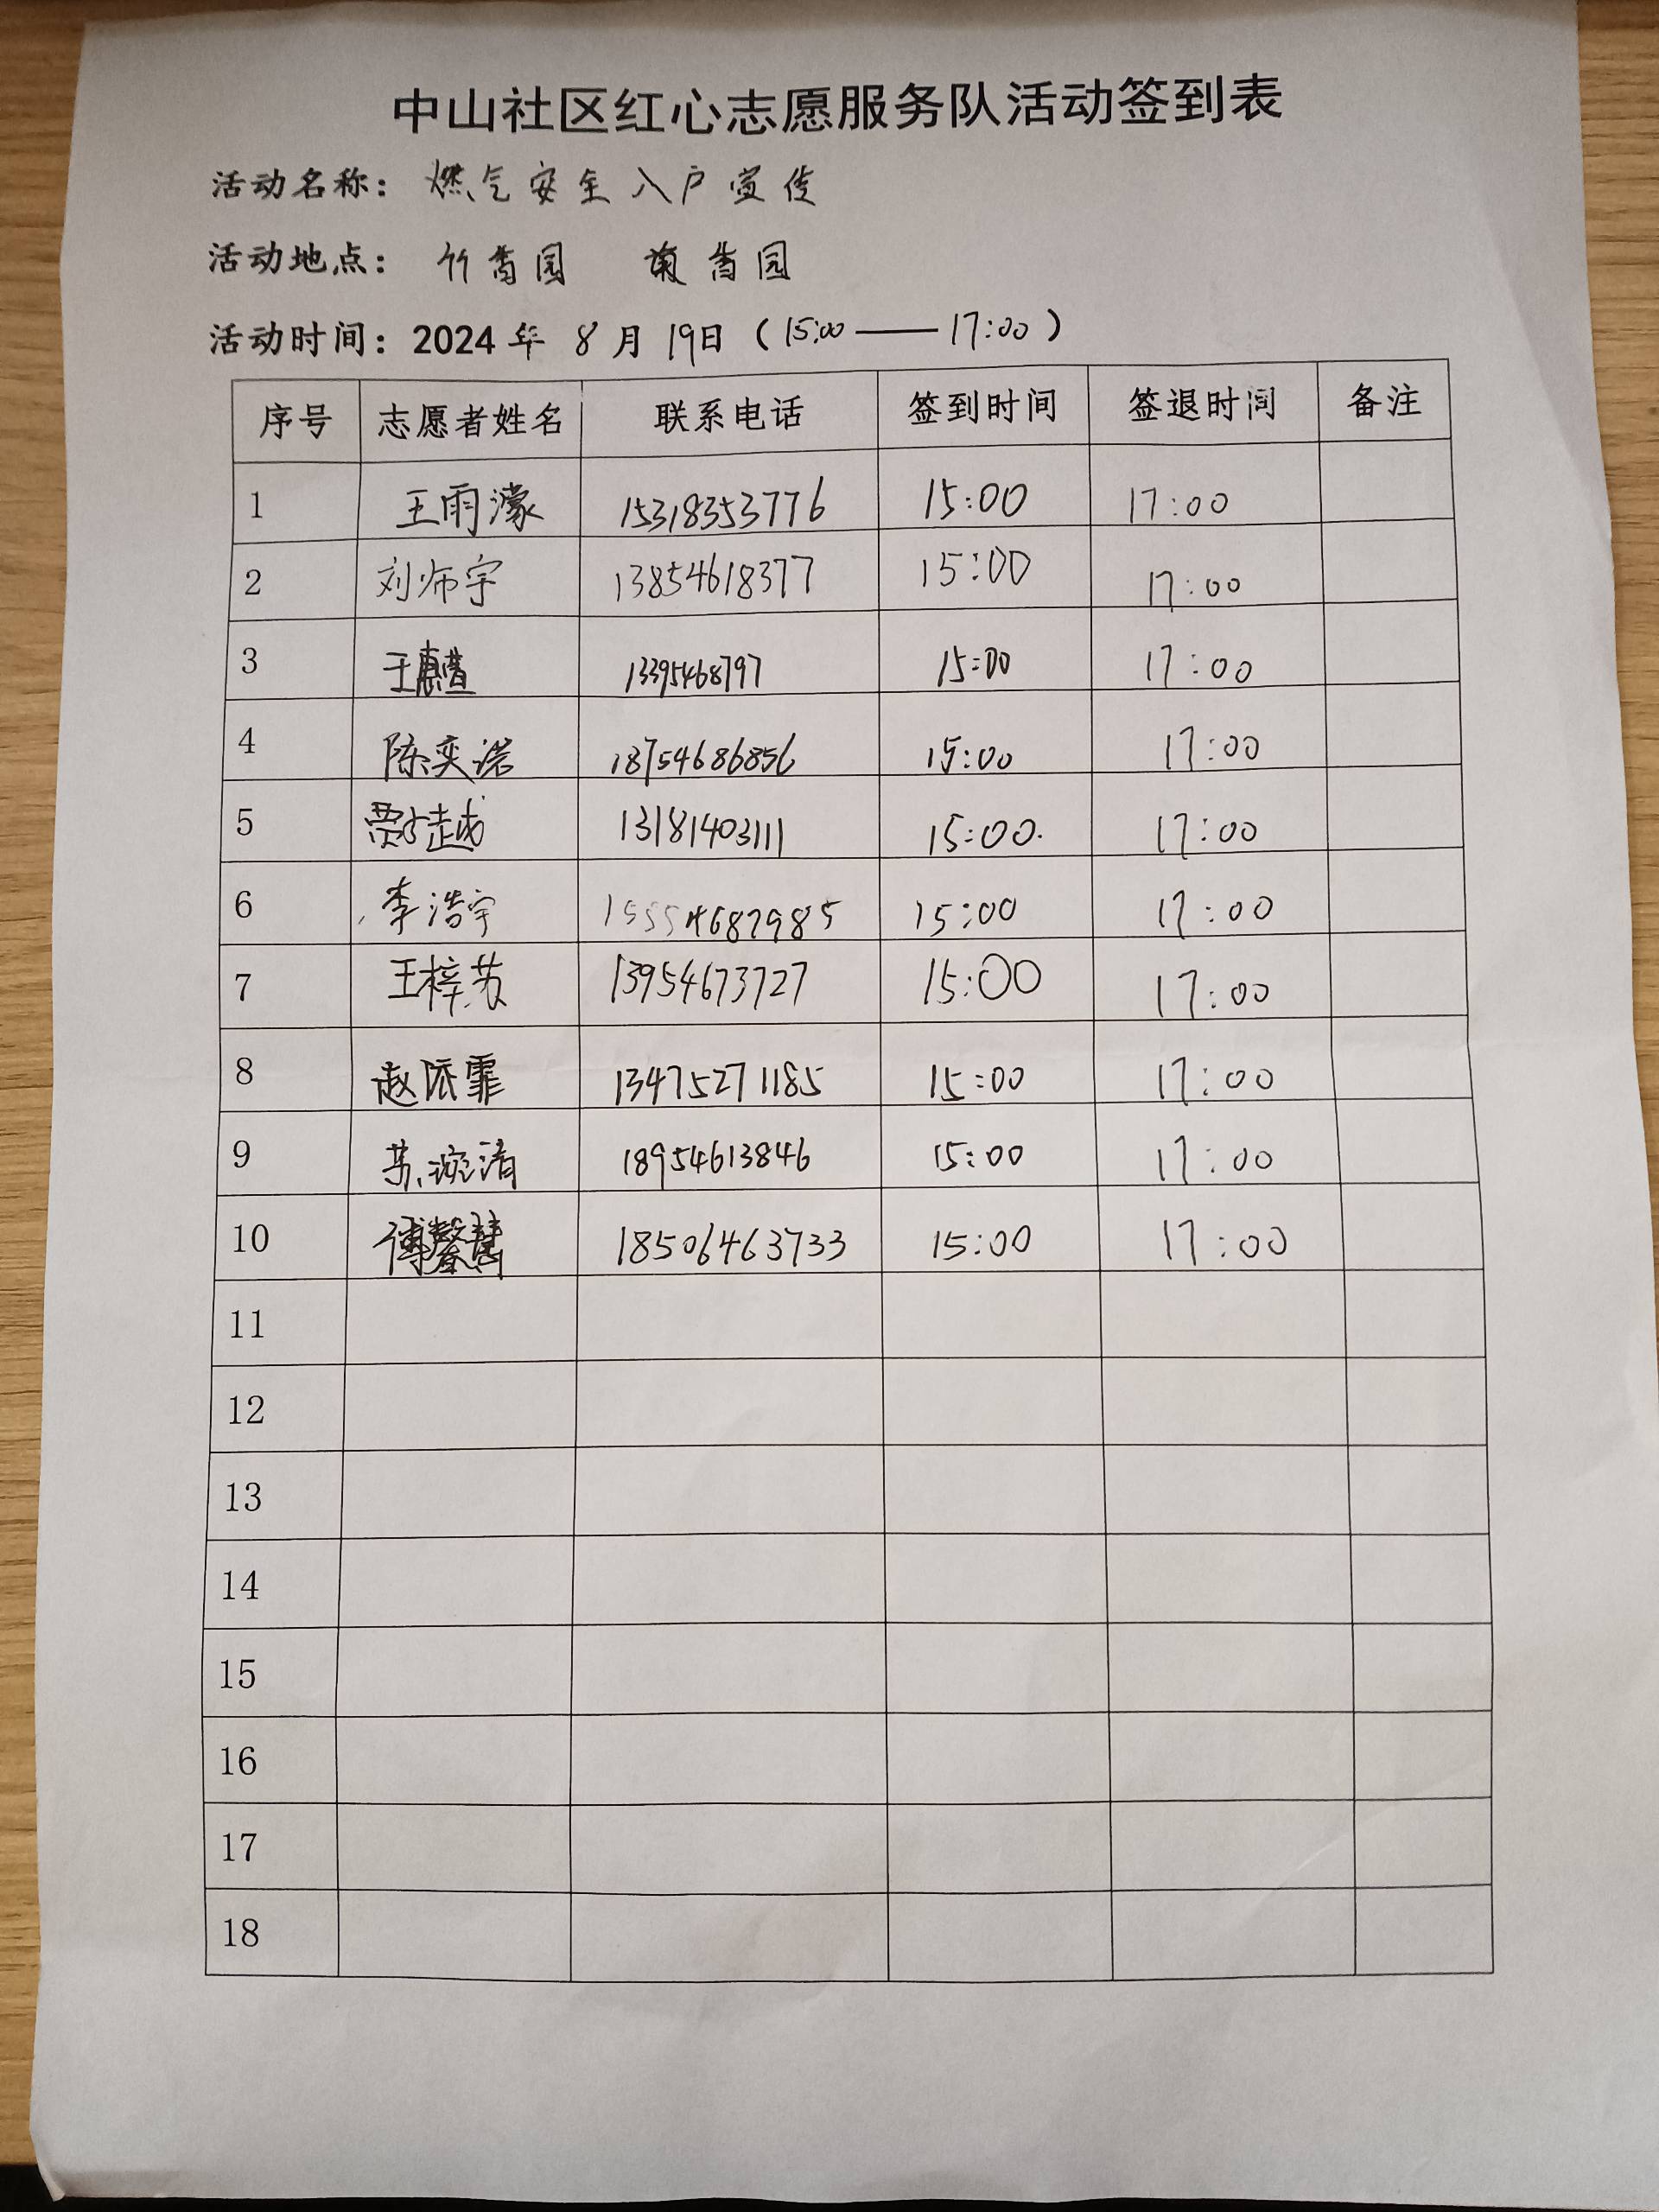 中山社区红心志愿服务队活动签到表
活动名称：燃气安全入户宣传
活动地点：竹香园 菊香园
活动时间：2024 年 8 月 19日（15:00——17:00）
序号 志愿者姓名 联系电话 签到时间 签退时间 备注
1 王雨濛 15318353776 15:00 17:00
2 刘师宇 13854618377 15:00 17:00
3 王惠萱 13395468797 15:00 17:00
4 陈奕诺 18754686856 15:00 17:00
5 贾越 13181403111 15:00 17:00
6 李浩宇 15554687985 15:00 17:00
7 王梓苏 13954673727 15:00 17:00
8 赵霏 13475271185 15:00 17:00
9 苏清 18954613846 15:00 17:00
10 傅馨慧 18506463733 15:00 17:00
11
12
13
14
15
16
17
18